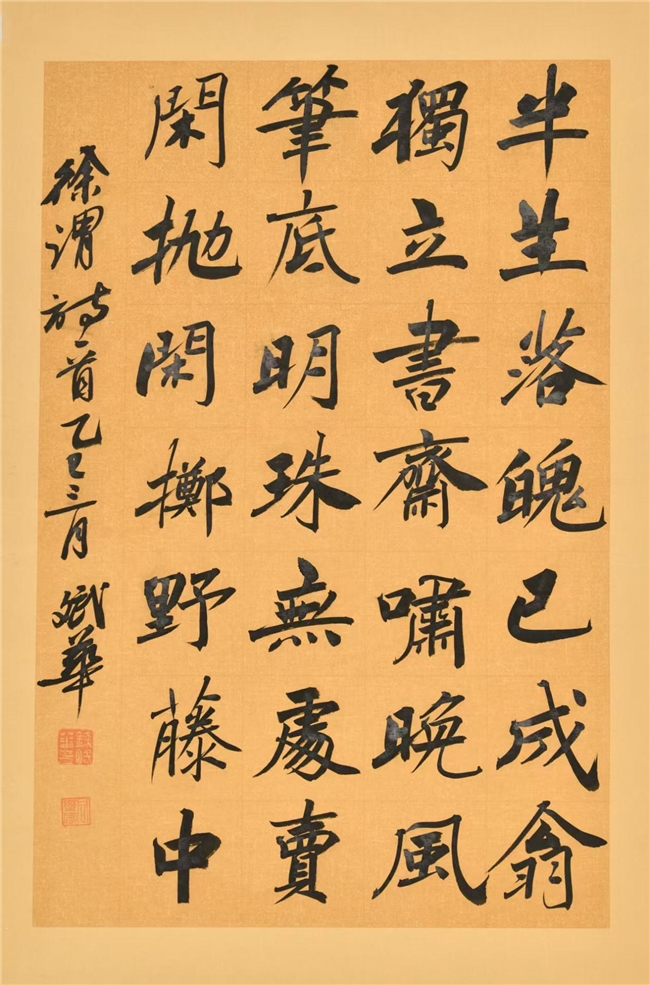 半生落魄已成翁
獨立書齋嘯晚風
筆底明珠無處賣
閑拋閑擲野藤中
徐渭詩一首乙巳三月 斌華